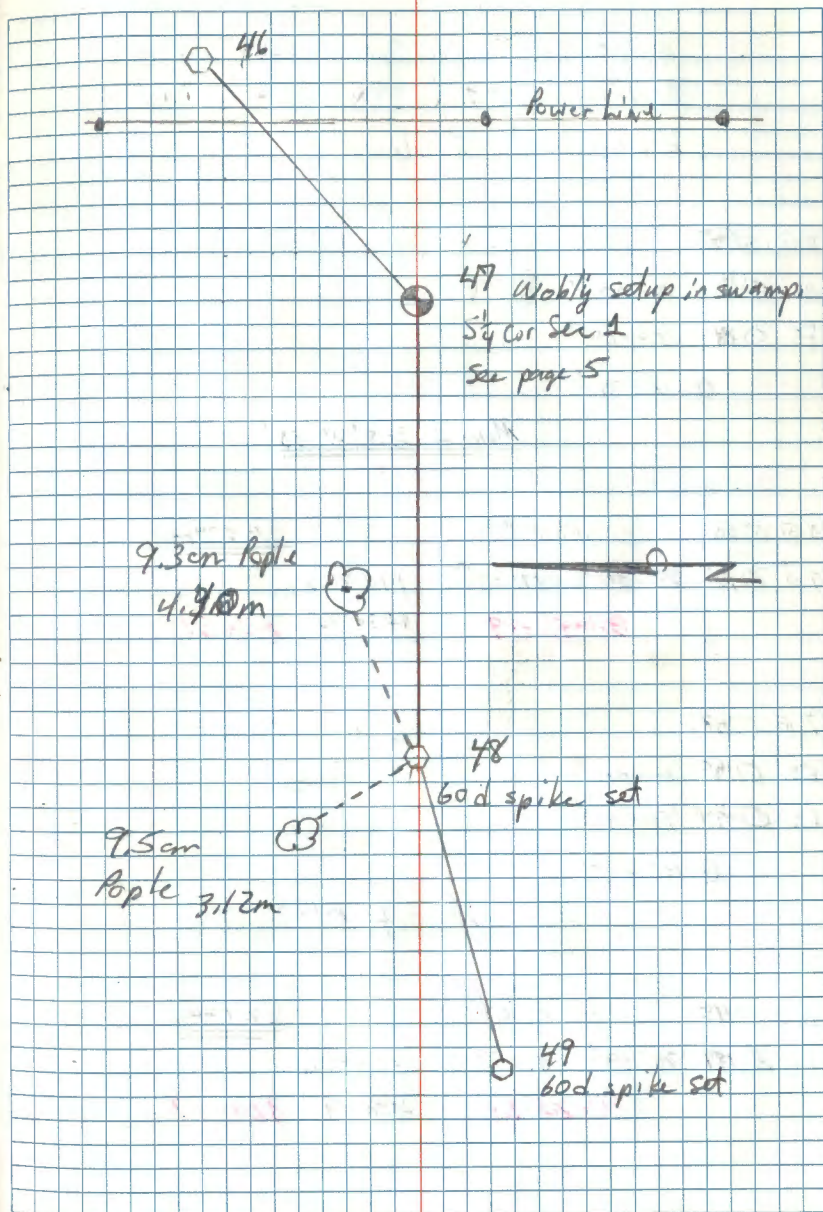 46
Power Line
47 Wobly setup in swamp.
S¼ Cor Sec 1
See page 5
9.3cm Pople
m
48
60d spike set
9.5cm
Pople 3.12m
49
60d spike set